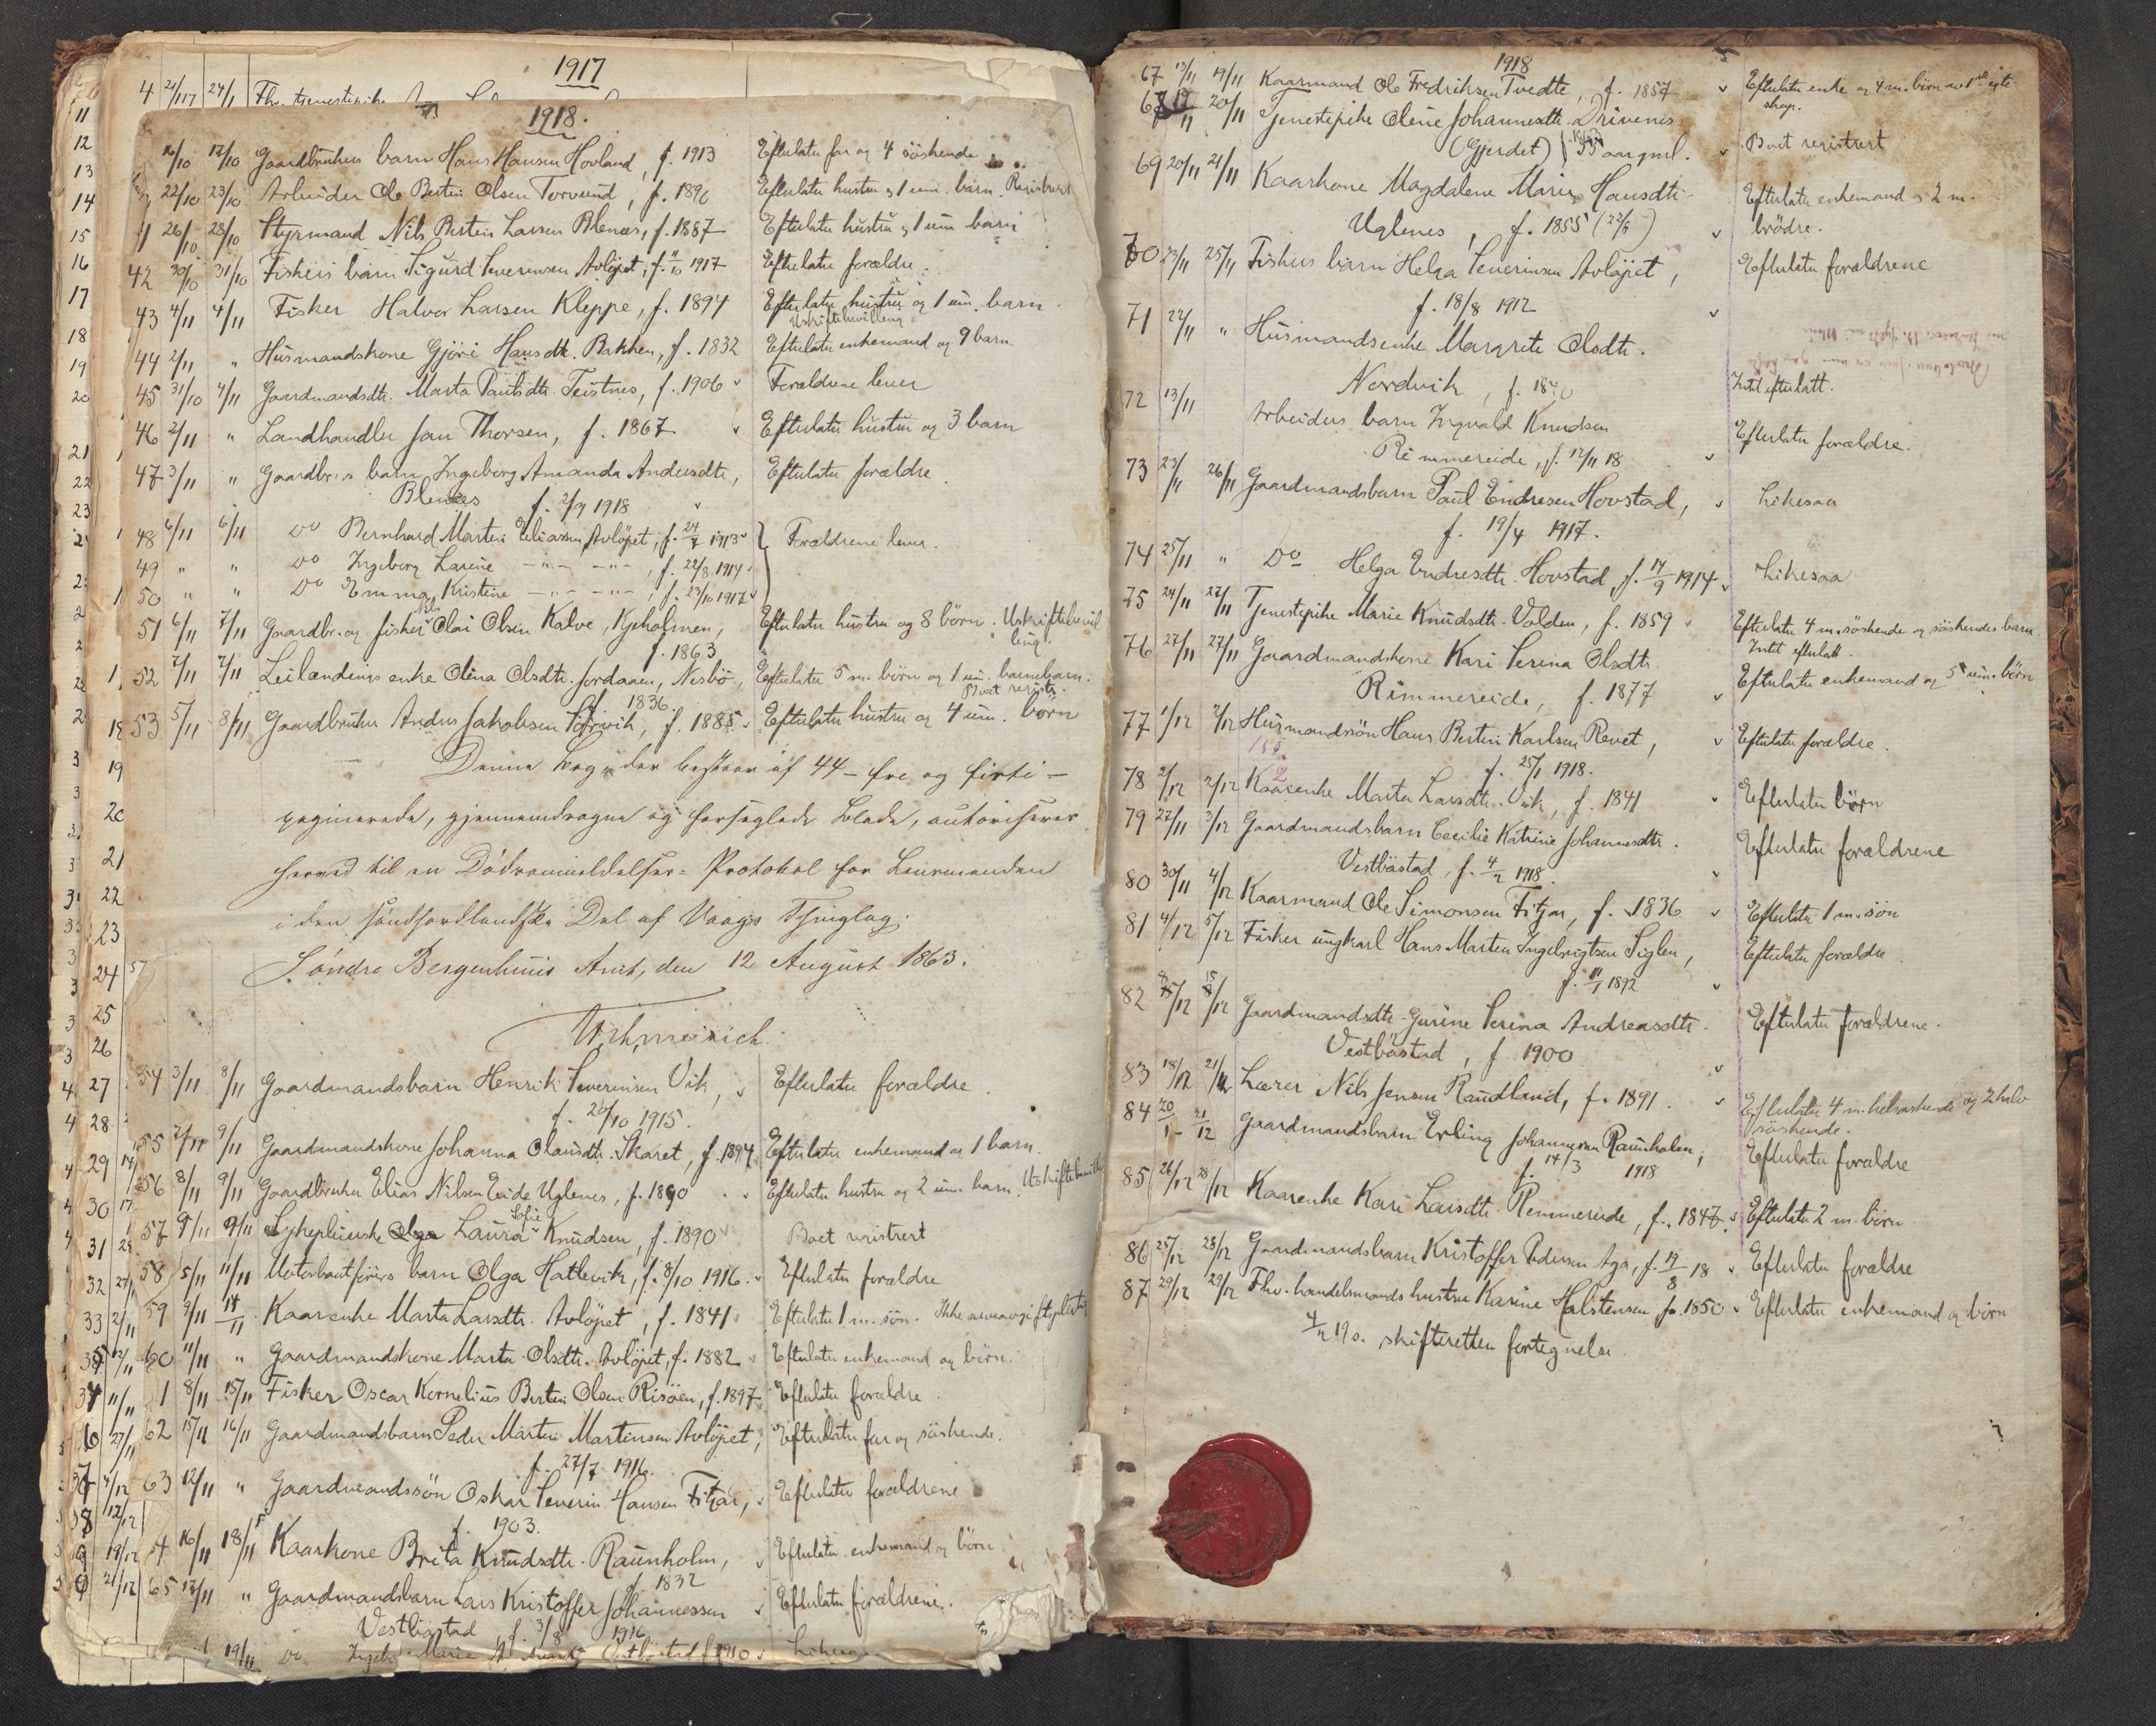 1917
4 21/1 17 24/1 Fhv. tjenestepike
1918.
16/10 17/10 Gaardbrukers barn Hans Hansen Hovland, f. 1913 Efterlater far og 4 söskende
22/10 23/10 Arbeider Ole Bertin Olsen Torvund, f. 1896 Efterlater hustru og 1 um. barn. Registrert
26/10 28/10 Styrmand Nils Bertin Larsen Blenes, f. 1887 Efterlater hustru og 1 um barn
42 30/10 31/10 Fiskers barn Sigurd Severinsen Avlöpet, f. 1917 Efterlater forældre.
43 4/11 4/11 Fisker Halvor Larsen Kleppe, f. 1894 Efterlater hustru og 1 um. barn
Uskiftebevilling
44 2/11 " Husmandskone Gjöri Hansdtr. Bakken, f. 1832 Efterlater enkemand og 9 barn
45 31/10 4/11 Gaardmandsdtr. Marta Paulsdtr. Teistnes, f. 1906 Forældrene lever
46 2/11 " Landhandler Jan Thorsen, f. 1867 Efterlater hustru og 3 barn
47 3/11 " Gaardbr.s barn Ingeborg Amanda Andersdtr, Efterlater forældre.
Blenes f. 2/9 1918
48 6/11 6/11 Do Bernhard Martin Eliassen Avlöpet, f. 24/7 1913 Forældrene lever.
49 " " Do Ingeborg Larine -"- -"-, f. 22/8 1914
50 " " Do Emma Kristine -"- -"-, f. 23/10 1917
51 6/11 7/11 Gaardbr. og fisker Nils Olai Olsen Kalve, Kjeholmen, Efterlater hustru og 8 börn. Uskiftebevil
f. 1863 ling.
52 7/11 7/11 Leilændings enke Olina Olsdtr. Jordaaen, Nesbö, Efterlater 5 m. börn og 1 um. barnebarn.
f. 1836. Boet registr.
53 5/11 8/11 Gaardbruker Anders Jakobsen Sörvik, f. 1885 Efterlater hustru og 4 um. börn
Denne Bog, der bestaar af 44 – fire og firti –
paginerede, gjennemdragne og forseglede Blade, autoriseres
herved til en Dödsanmeldelses-Protokol for Lensmanden
i den söndhordlandske Del af Vaags Thinglag.
Söndre Bergenhuus Amt, den 12 August 1863.
54 3/11 8/11 Gaardmandsbarn Henrik Severinsen Vik, Efterlater forældre
f. 26/10 1915.
55 7/11 9/11 Gaardmandskone Johanna Olausdtr. Skaret, f. 1894 Efterlater enkemand og 1 barn.
56 8/11 9/11 Gaardbruker Elias Nilsen Eide Uglenes, f. 1890 Efterlater hustru og 2 um. barn. Uskiftebevill
57 9/11 9/11 Sykepleierske Laura Sofie Knudsen, f. 1890 Boet registrert
58 5/11 11/11 Motorbaatförers barn Olga Hatlevik, f. 8/10 1916. Efterlater forældre
59 9/11 14/11 Kaarenke Marta Larsdtr. Avlöpet, f. 1841 Efterlater 1 m. sön. Ikke arveavgiftspligtig
60 11/11 " Gaardmandskone Marta Olsdtr. Avlöpet, f. 1882 Efterlater enkemand og börn.
1 8/11 15/11 Fisker Oscar Kornelius Bertin Olsen Risöen, f. 1897 Efterlater forældre
62 15/11 16/11 Gaardmandsbarn Peder Martin Martinsen Avlöpet, Efterlater far og söskende.
f. 27/7 1916.
63 12/11 " Gaardmandssön Oskar Severin Hansen Fitjar, Efterlater forældrene
f. 1903.
4 16/11 18/11 Kaarkone Brita Knudsdtr. Raunholm, Efterlater enkemand og börn
f. 1832
65 17/11 " Gaardmandsbarn Lars Kristoffer Johannessen Efterlater forældrene.
Vestböstad, f. 3/8 1916
19/11 Do Marie f. 1910 Likesaa
1918
67 13/11 19/11 Kaarmand Ole Fredriksen Tvedte, f. 1857 Efterlater enke og 4 m. börn av 1ste egte-
skap.
68 20/11 Tjenestepike Oline Johannesdtr. Drivenes
(Gjerdet) 55 aar gml. Boet registrert
69 20/11 21/11 Kaarkone Magdalene Marie Hansdtr. Efterlater enkemand og 2 m.
Uglenes, f. 1855 brödre.
70 23/11 25/11 Fiskers barn Helga Severinsen Avlöpet, Efterlater forældrene
f. 18/8 1912
71 22/11 " Husmandsenke Margrete Olsdtr.
Nordvik, f. Intet efterlatt.
72 13/11 Arbeiders barn Ingvald Knudsen
Rimmereide, f. 12/11 18 Efterlater forældre.
73 23/11 26/11 Gaardmandsbarn Paul Endresen Hovstad, Likesaa
f. 19/4 1917.
74 25/11 " Do Helga Endresdtr. Hovstad, f. 14/9 1914 Likesaa
75 24/11 27/11 Tjenestepike Marie Knudsdtr. Volden, f. 1859 Efterlater 4 m. söskende og söskendes barn
Intet efterlatt.
76 27/11 27/11 Gaardmandskone Kari Serina Olsdtr.
Rimmereide, f. 1877 Efterlater enkemand og 5 um. börn
77 1/12 2/12 Husmandssön Hans Bertin Karlsen Revet, Efterlater forældre.
f. 25/1 1918.
78 2/12 2/12 Kaarenke Marta Larsdtr. Vik, f. 1841 Efterlater börn
79 27/11 3/12 Gaardmandsbarn Cecilie Katrine Johannesdtr. Efterlater forældrene
Vestböstad, f. 4/2 1918.
80 30/11 4/12 Kaarmand Ole Simonsen Fitjar, f. 1836 Efterlater 1 m. sön
81 4/12 5/12 Fisker ungkarl Hans Martin Ingebrigtsen Siglen, Efterlater forældre.
f. 11/1 1892
82 Gaardmandsdtr. Gurine Serina Andreasdtr. Efterlater forældrene.
Vestböstad, f. 1900
83 18/12 21/12 Lærer Nils Jensen Raudland, f. 1891. Efterlater 4 m. helsöskende og 2 halv
söskende.
84 20/1 21/12 Gaardmandsbarn Erling Johannesen Raunholm, Efterlater forældre
f. 14/3 1918
85 26/12 28/12 Kaarenke Kari Larsdtr. Remmereide, f. 1847 Efterlater 2 m. börn
86 25/12 28/12 Gaardmandsbarn Kristoffer Pedersen Aga, f. 19/8 18 Efterlater forældre
87 29/12 29/12 Fhv. handelsmands hustru Karine Halstensen f. 1850 Efterlater enkemand og börn
19 s. skifteretten fortegnelse.